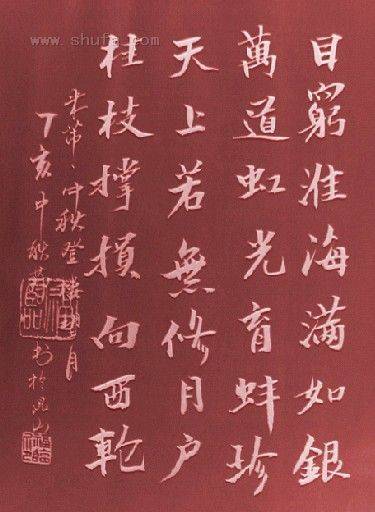 www.shufa.com
目窮淮海滿如銀
萬道虹光育蚌珍
天上若無修月户
桂枝撑損向西乾
米芾、中秋登樓望月
丁亥中秋 於 山